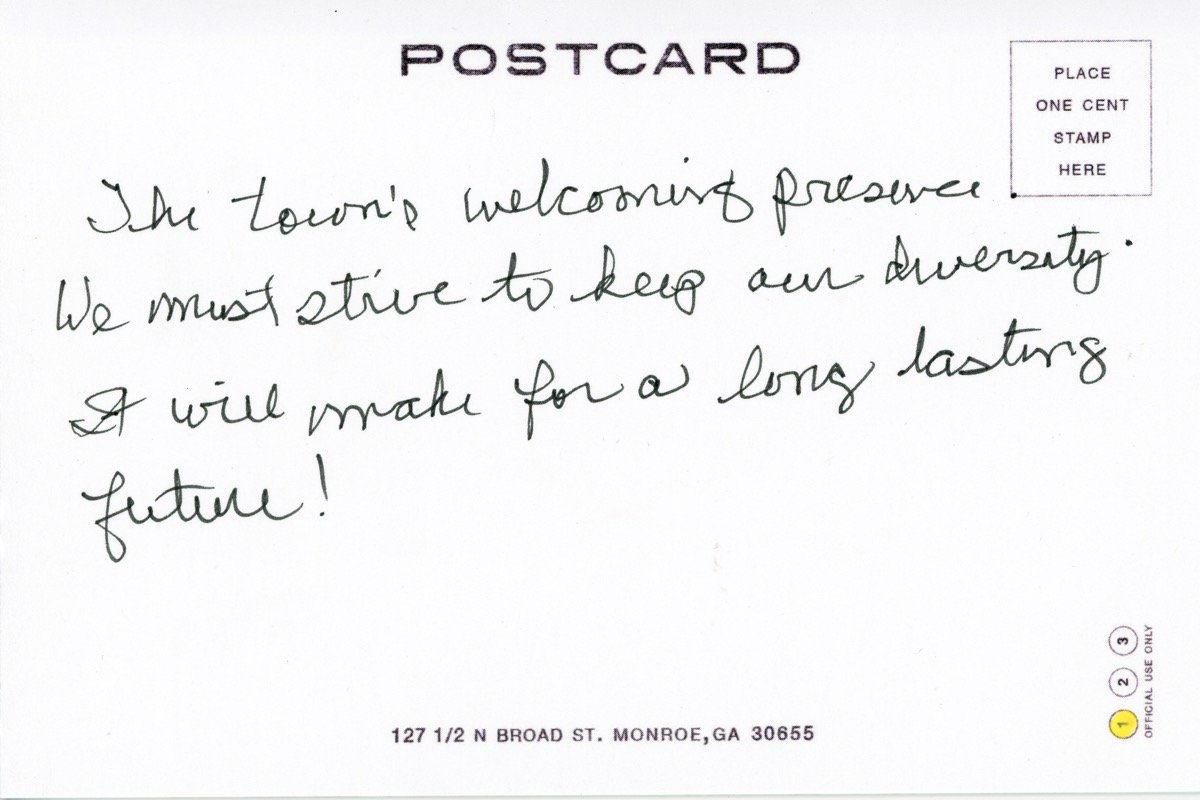 POSTCARD
PLACE
ONE CENT
STAMP
HERE
The town's welcoming presence.
We must strive to keep our diversity.
It will make for a long lasting
future!
1 2 3
OFFICIAL USE ONLY
127 1/2 N BROAD ST. MONROE,GA 30655